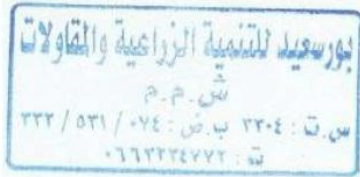 بورسعيد للتنمية الزراعية والمقاولات
ش.م.م
س.ت : ٢٣٠٤ ب.ض : ٠٧٤ / ٥٣١ / ٢٢٢
ت : ٠٦٦٣٢٢٤٧٧٢